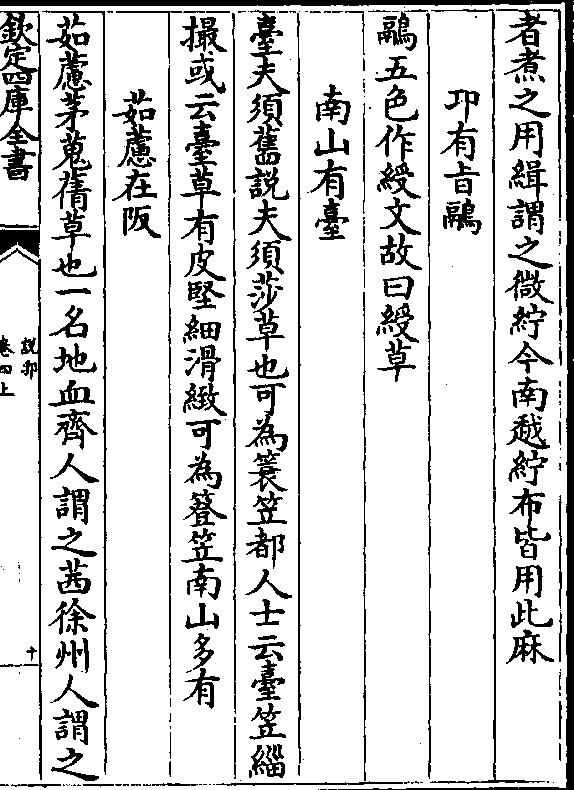 者煮之用緝謂之徽紵今南越紵布皆用此麻
卭有旨鷊
鷊五色作綬文故曰綬草
南山有臺
臺夫須舊説夫須莎草也可為簑笠都人士云臺笠緇
撮或云臺草有皮堅細滑緻可為簦笠南山多有
茹藘在阪
茹藘茅蒐蒨草也一名地血齊人謂之茜徐州人謂之
欽定四庫全書
説郛
卷四上
十